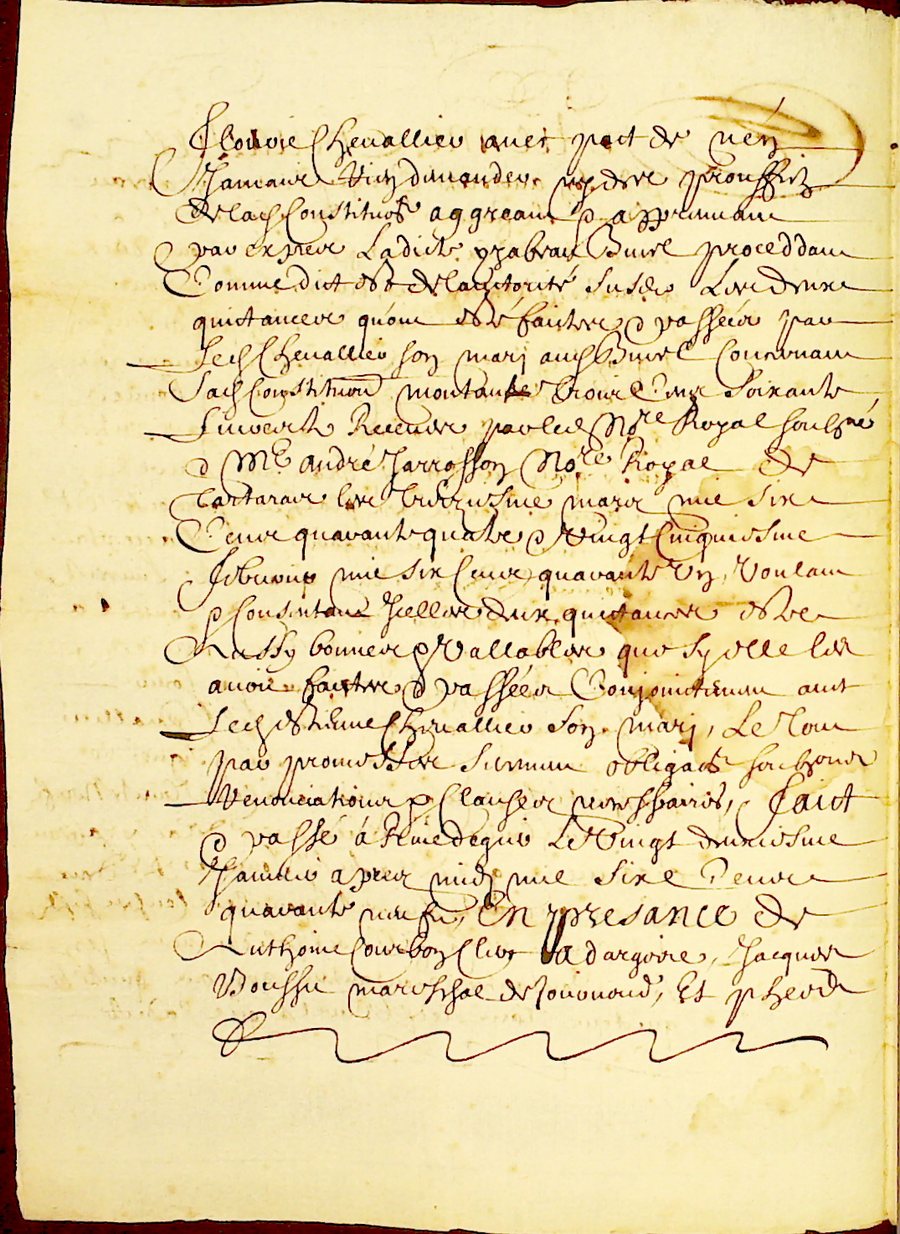 Flourie Chevallier avec pact de n'en
Jamais rien demander, ny des prouffictz
de lad Constituon aggreant & apprenvant
par expres Ladicte yzabeau Burel proceddant
Comme dict est de lauctorité susd Les deux
quictances qu'ont esté faictes & passéés par
Led Chevallier son mary aud Burel Concernant
Lad Constitution montantz Trois Cens soixante
livres tz Receues par led No.re Royal soubz.né
& M.e andré Jarrosson No.re Royal de
Tartaras les treziesme mars mil six
Cens quarante quatre & Vingt Cinquiesme
febvrier mil six Cens quarante Un, Voulant
& Consentant Icelles deux quictances estre
Aussy bonnes & Vallables que sy elle les
avoit faictes & passéés Conjoinctement avec
Led estienne Chevallier son mary, Le Tout
par promesses serment obligaon soubzons
Renonciations & Clauses necessaires, Faict
& passé à Rivedegier Le Vingt deuxiesme
Janvier apres midy mil six Cens
quarante neuf, En presance de
Anthoine Courbon Clerc dargoire, Jacques
Boussu mareschal de , Et p